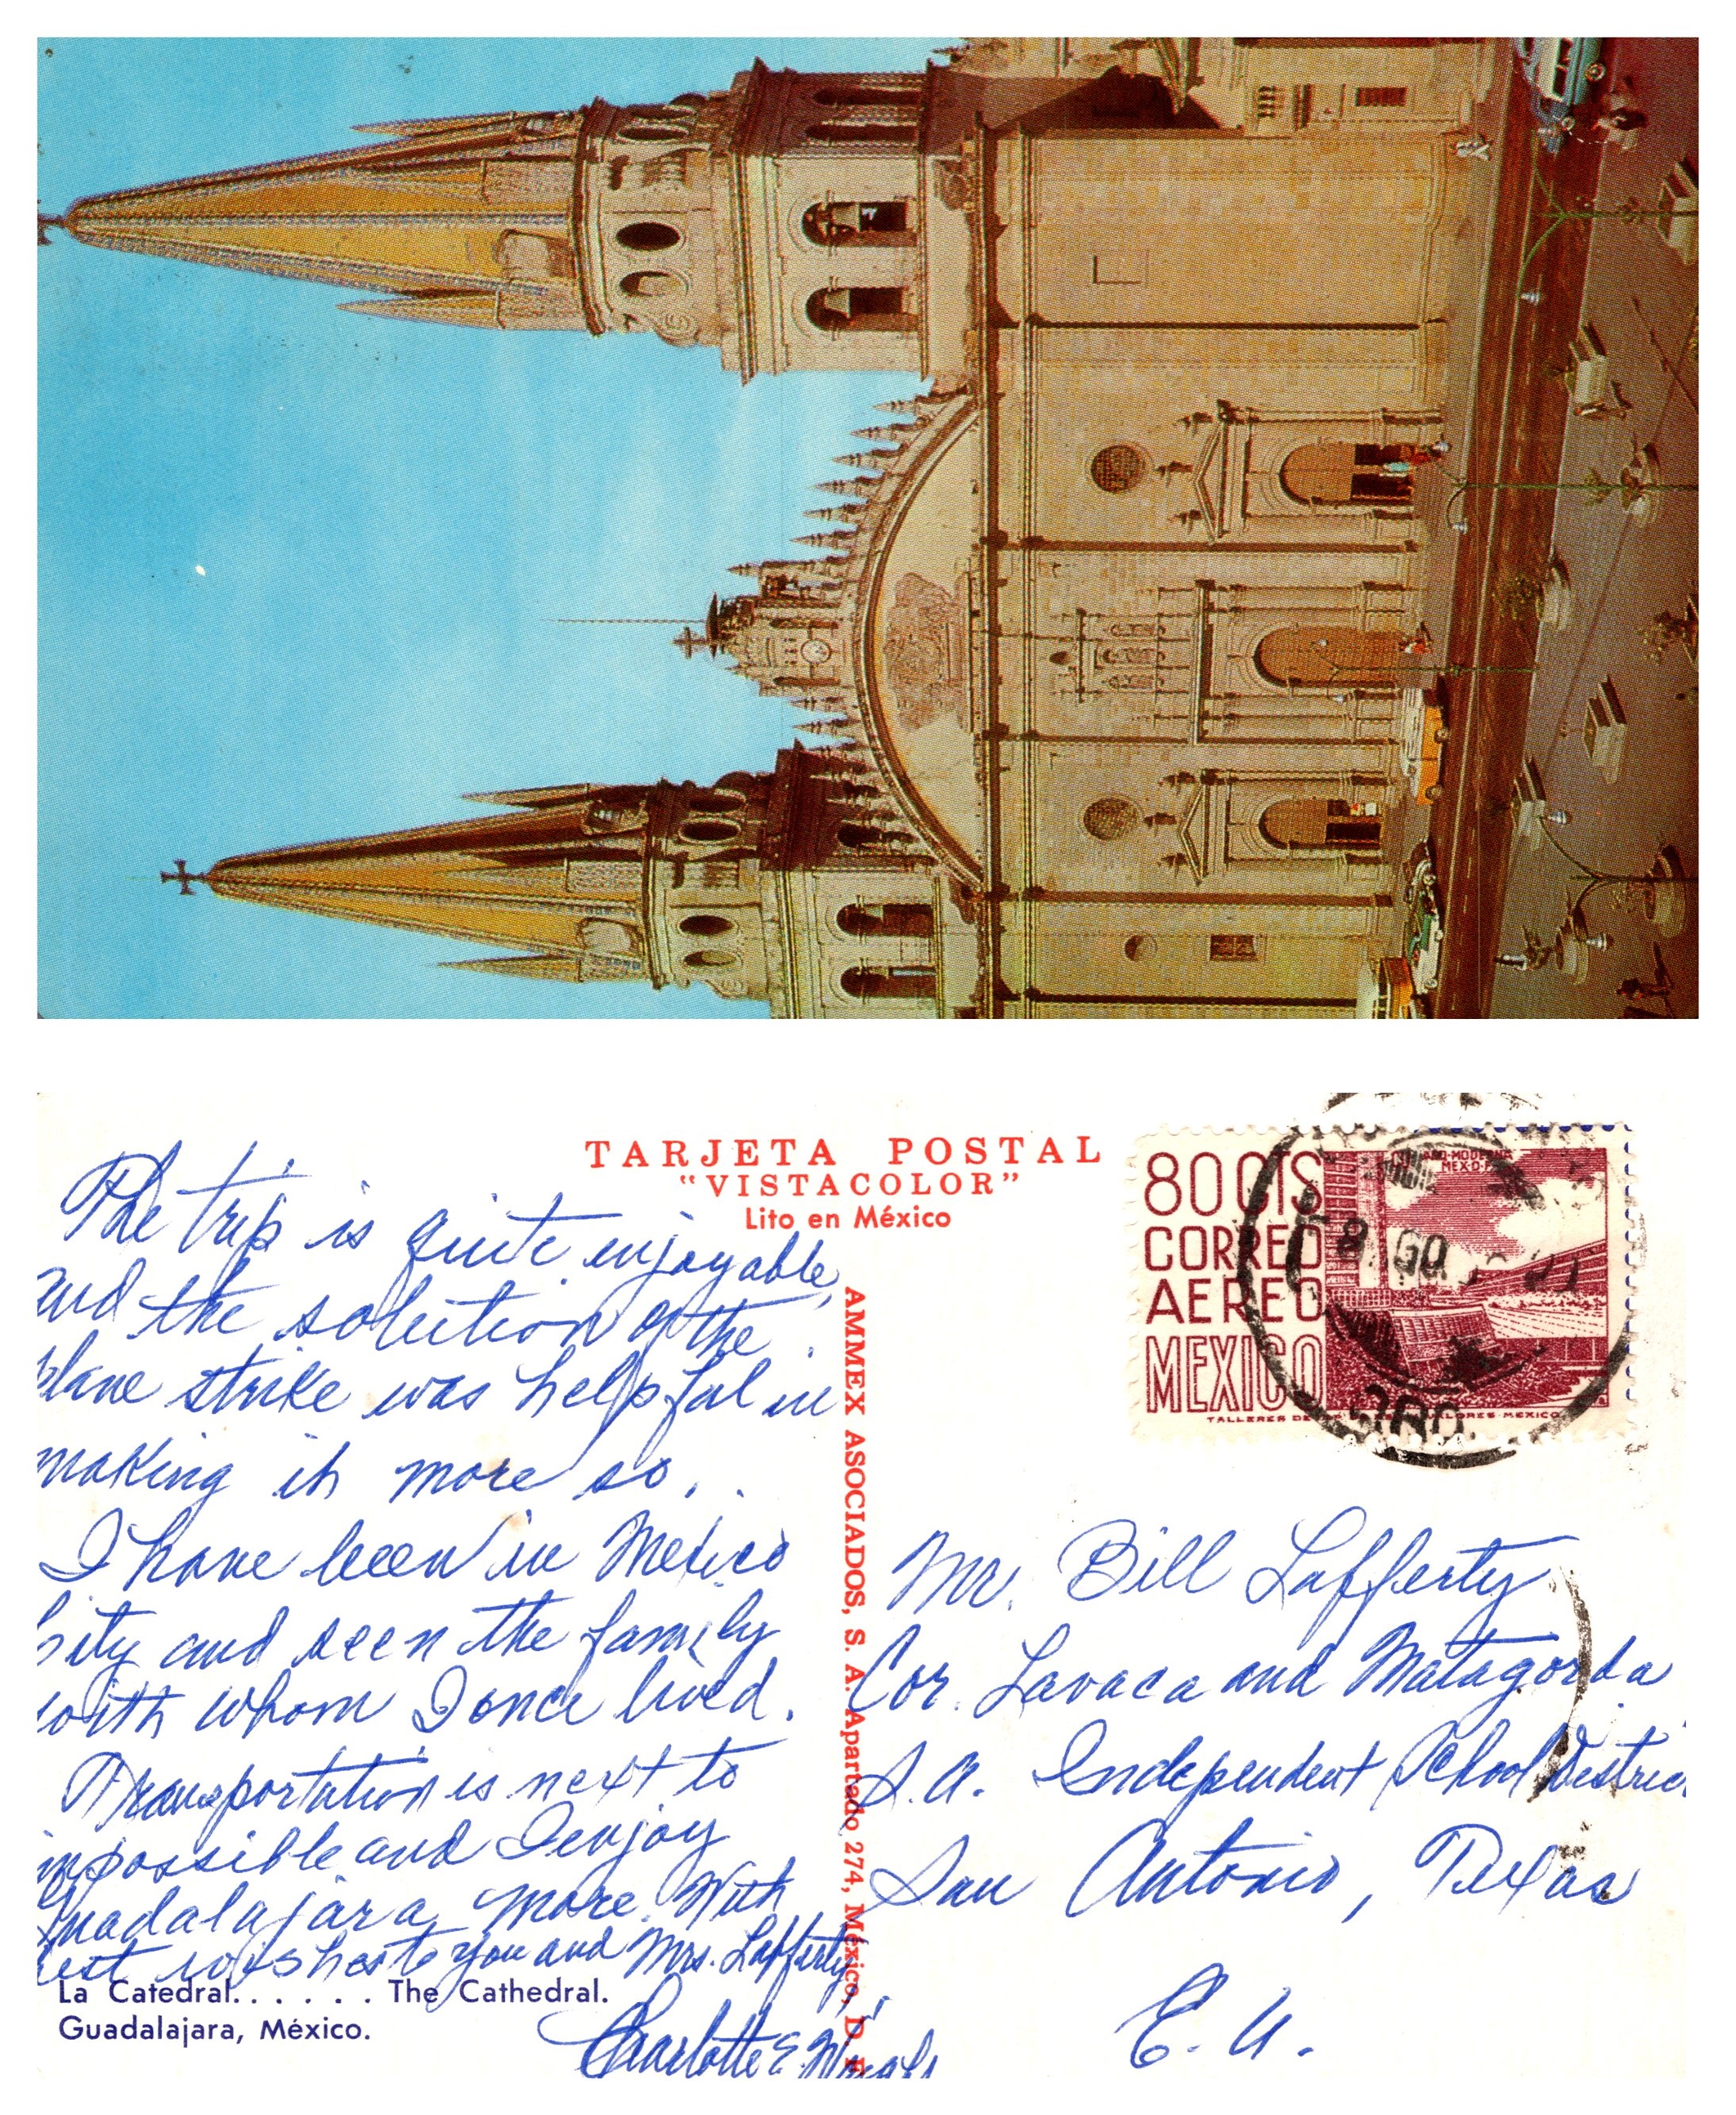 TARJETA POSTAL
"VISTACOLOR"
Lito en México
80 CTS
CORREO
AEREO
MEXICO
MEX-D.F.
TALLERES DE
VALORES-MEXICO
The trip is quite enjoyable,
and the solution of the
plane strike was helpful in
making it more so.
I have been in Mexico
City and seen the family
with whom I once lived.
Transportation is next to
impossible and I enjoy
Guadalajara more. With
best wishes to you and Mrs. Lafferty,
Charlotte E.
La Catedral. . . . . . The Cathedral.
Guadalajara, México.
AMMEX ASOCIADOS, S. A. Apartado 274, México, D. F.
Mr. Bill Lafferty
Cor. Lavaca and Matagorda
S.A. Independent School District
San Antonio, Texas
E. U.